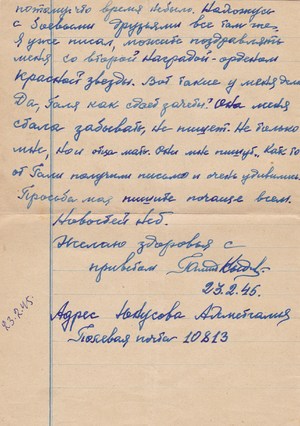 потому что время небыло. Нахожусь
с боевыми друзьями все там же,
Я уже писал, можите поздравлять
меня со второй Наградой-орденом
Красной звезды. Вот такие у меня дела
Да, Галя как сдает зачёты? Она меня
стала забывать, не пишет. Не только
мне, но и отца мать. Они мне пишут.. Как то
от Гали получили письмо и очень удивились.
Просьба моя пишите почаще всем.
Новостей неб.
Желаю здоровья с
приветом
23.2.45.
23.2.45.
Адрес Юнусова Ахметгалия
Полевая почта 10813